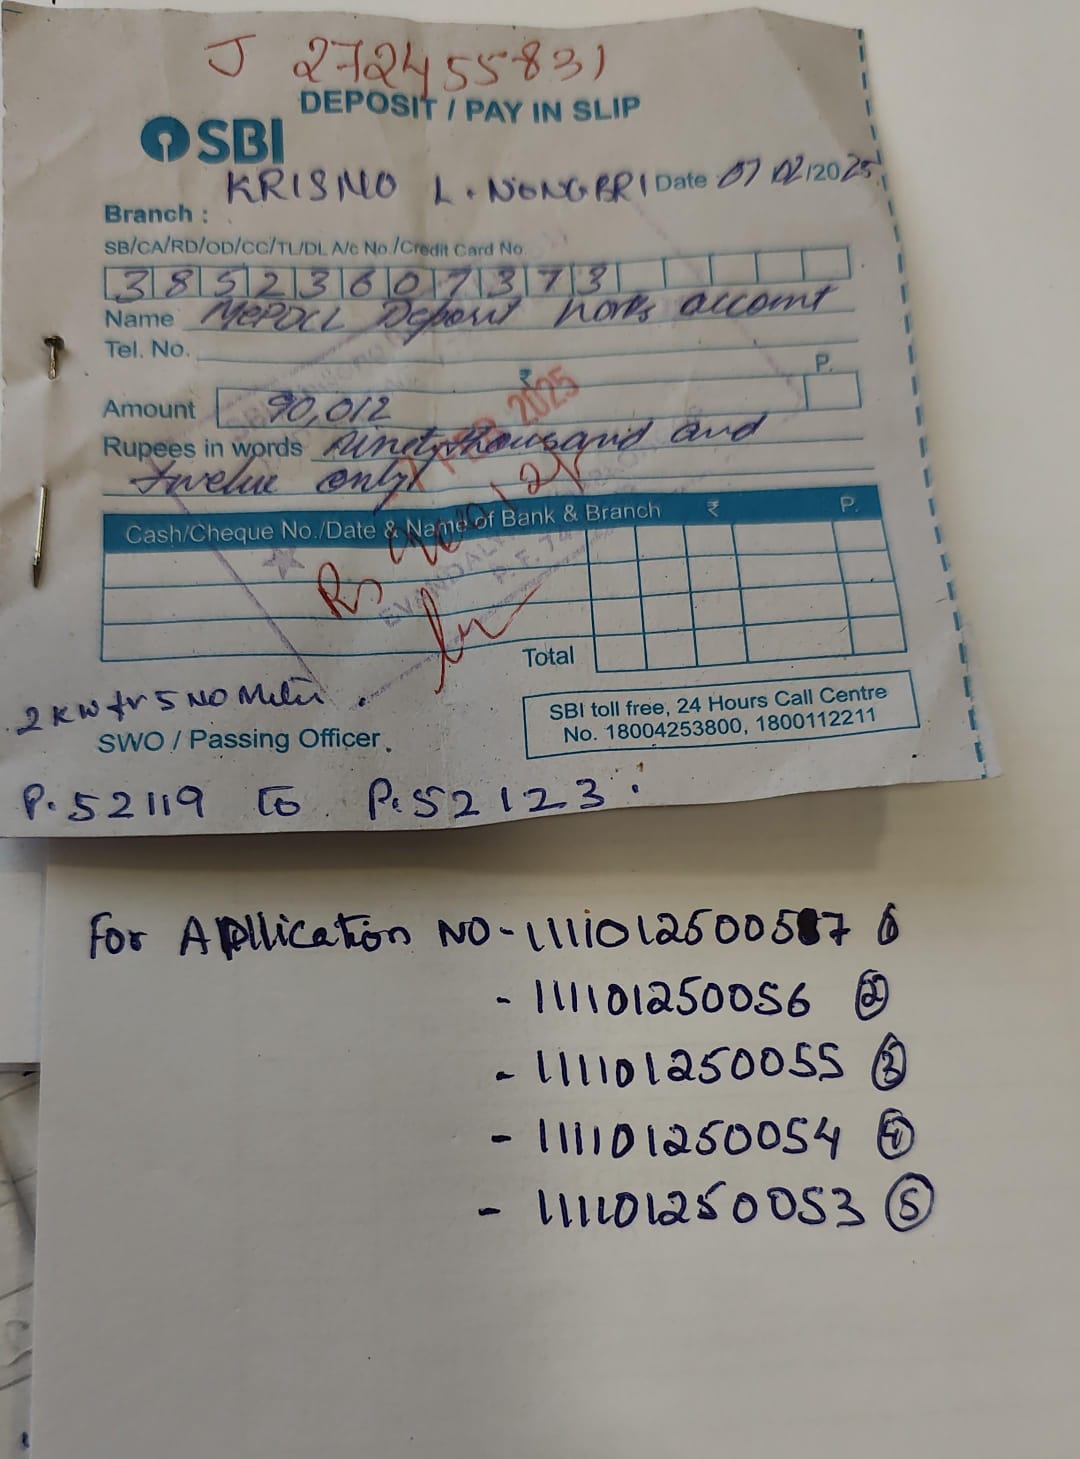 J 272455831
DEPOSIT / PAY IN SLIP
SBI
KRISMO L. NONGBRI Date 07 02/2025
Branch :
SB/CA/RD/OD/CC/TL/DL A/c No./Credit Card No.
38523607373
Name MePDCL Deposit works account
Tel. No.
₹ P.
Amount 90,012
Rupees in words Ninety thousand and
twelve only
FEB 2025
Cash/Cheque No./Date & Name of Bank & Branch ₹ P.
Rs 90012/-
Total
2 KW for 5 NO Meter.
SWO / Passing Officer
SBI toll free, 24 Hours Call Centre
No. 18004253800, 1800112211
P. 52119 to P. 52123.
For Application NO - 111101250057 1
- 111101250056 2
- 111101250055 3
- 111101250054 4
- 111101250053 5